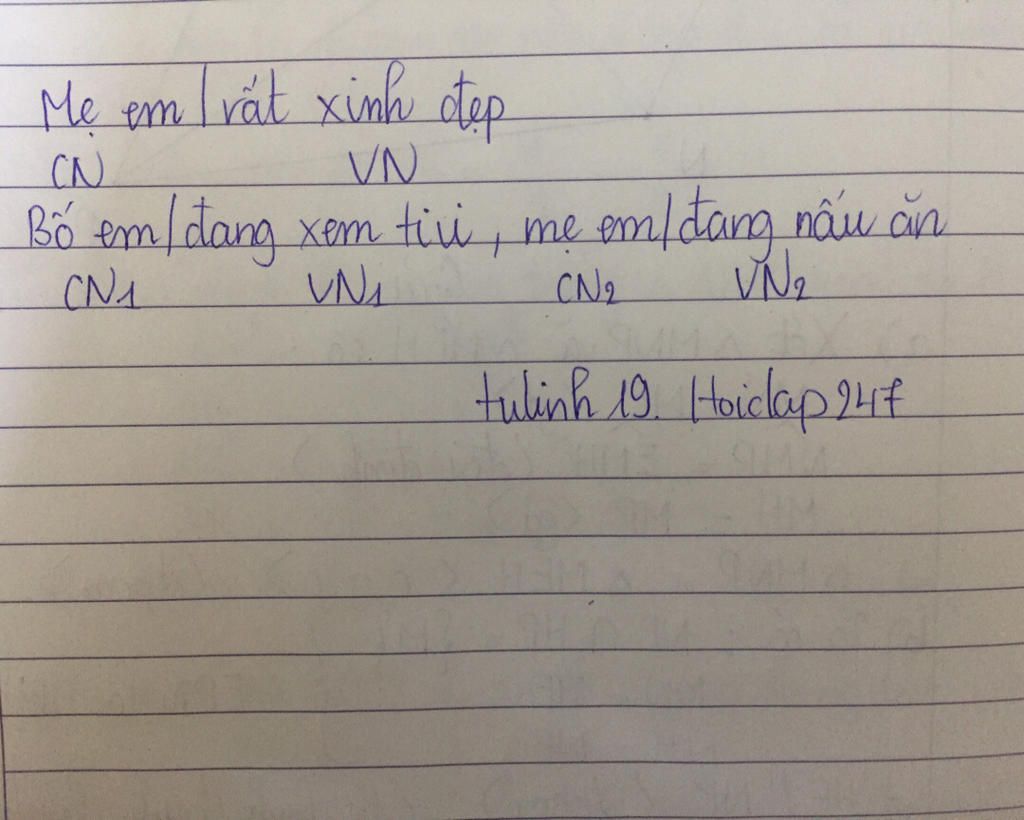 Mẹ em/rất xinh đẹp
CN VN
Bố em/đang xem tivi, mẹ em/đang nấu ăn
CN1 VN1 CN2 VN2
tulinh19. Hoidap247